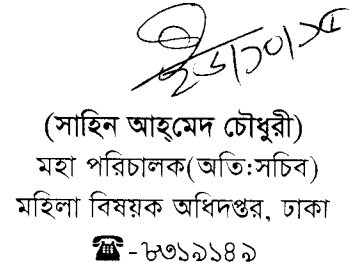 (সাহিন আহ্‌মেদ চৌধুরী)
মহা পরিচালক(অতি:সচিব)
মহিলা বিষয়ক অধিদপ্তর, ঢাকা
☎-৮৩১৯১৪৯